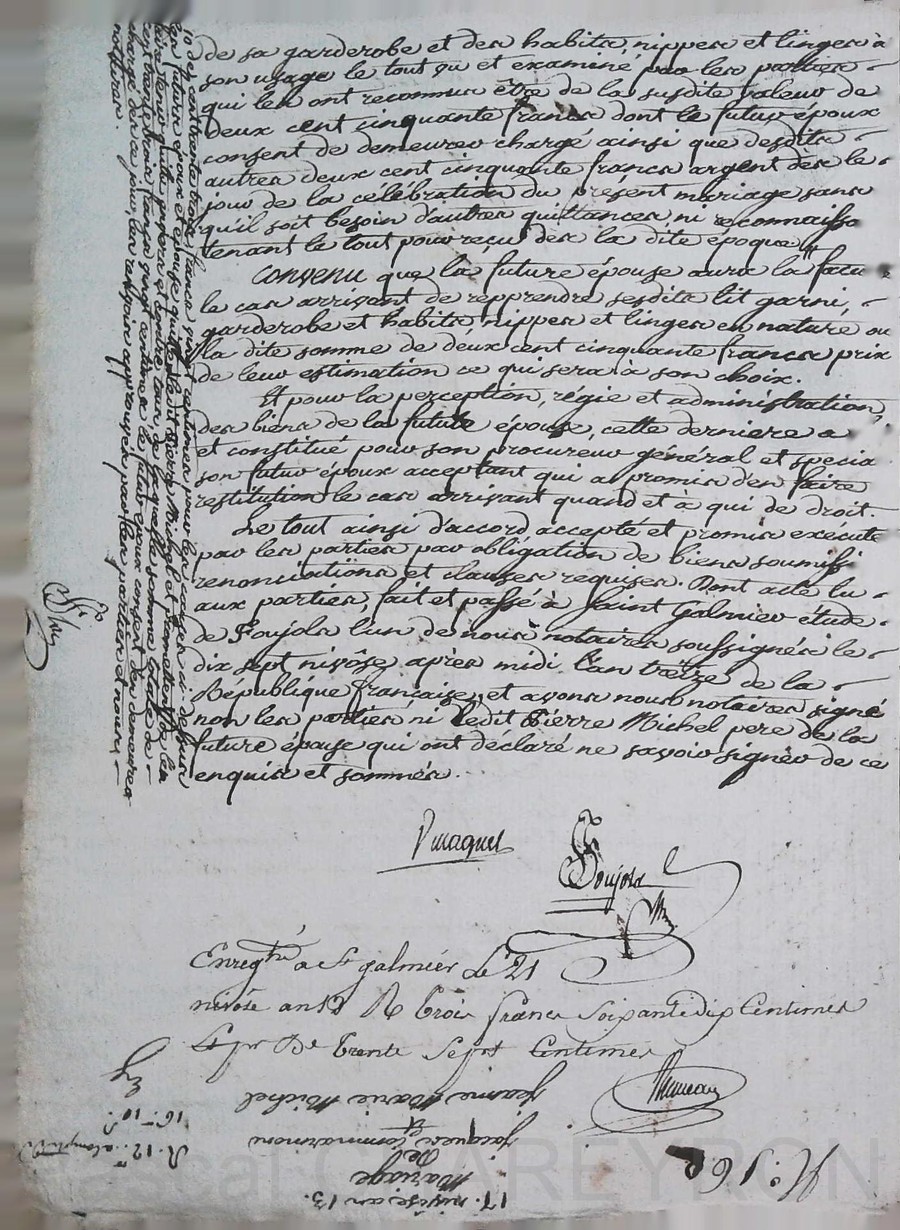 de sa garderobe et des habits, nippes et linges à
son usage le tout vu et examiné par les parties
qui les ont reconnus être de la susdite valeur de
deux cent cinquante francs dont le futur époux
consent de demeurer chargé ainsi que desdits
autres deux cent cinquante francs argent dès le
jour de la célébration du présent mariage sans
qu'il soit besoin d'autres quittances ni reconnaissa
tenant le tout pour reçu dès la dite époque
Convenu que la future épouse aura la facu
le cas arrivant de repprendre sesdits lit garni,
garderobe et habits, nippes et linges en nature ou
la dite somme de deux cent cinquante francs prix
de leur estimation ce qui sera à son choix.
Et pour la perception, régie et administration,
des biens de la future épouse, cette derniere a
et constitué pour son procureur général et specia
son futur époux acceptant qui a promis d'en faire
restitution le cas arrivant quand et à qui de droit.
Le tout ainsi d'accord accepté et promis exécuté
par les parties par obligation de biens soumissi
renonciations et clauses requises. Dont acte lu
aux parties, fait et passé à Saint Galmier étude
de Foujols l'un de nous notaires soussignés le
dix sept nivôse après midi l'an treize de la
République française, et avons nous notaires signé
non les parties ni ledit Pierre Michel pere de la
future épouse qui ont déclaré ne savoir signer de ce
enquis et sommés.
trente trois francs
futurs époux et épouse quittent ledit Pierre Michel et promettent de l'en
faire tenir quitte envers et contre tous, de laquelle somme totale de
trente trois francs vingt centimes le futur époux consent d'en demeurer
chargé dès ce jour, les renvoirs approuvés par les parties et nous
notaires.
Foujols
Enreg.tré a St galmier Le 21
nivôse an 13 R Trois francs Soixante dix Centimes
Trente Sept Centimes
17. nivôse an 13.
Mariage
De
Jacques Commarmond
et
Jeanne Marie Michel
R. 12
16 10
N. 196